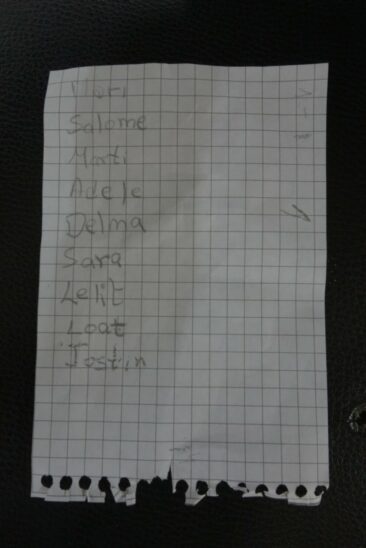 Salome
Marti
Adele
Delma
Sara
Lelit
Loat
Jostin